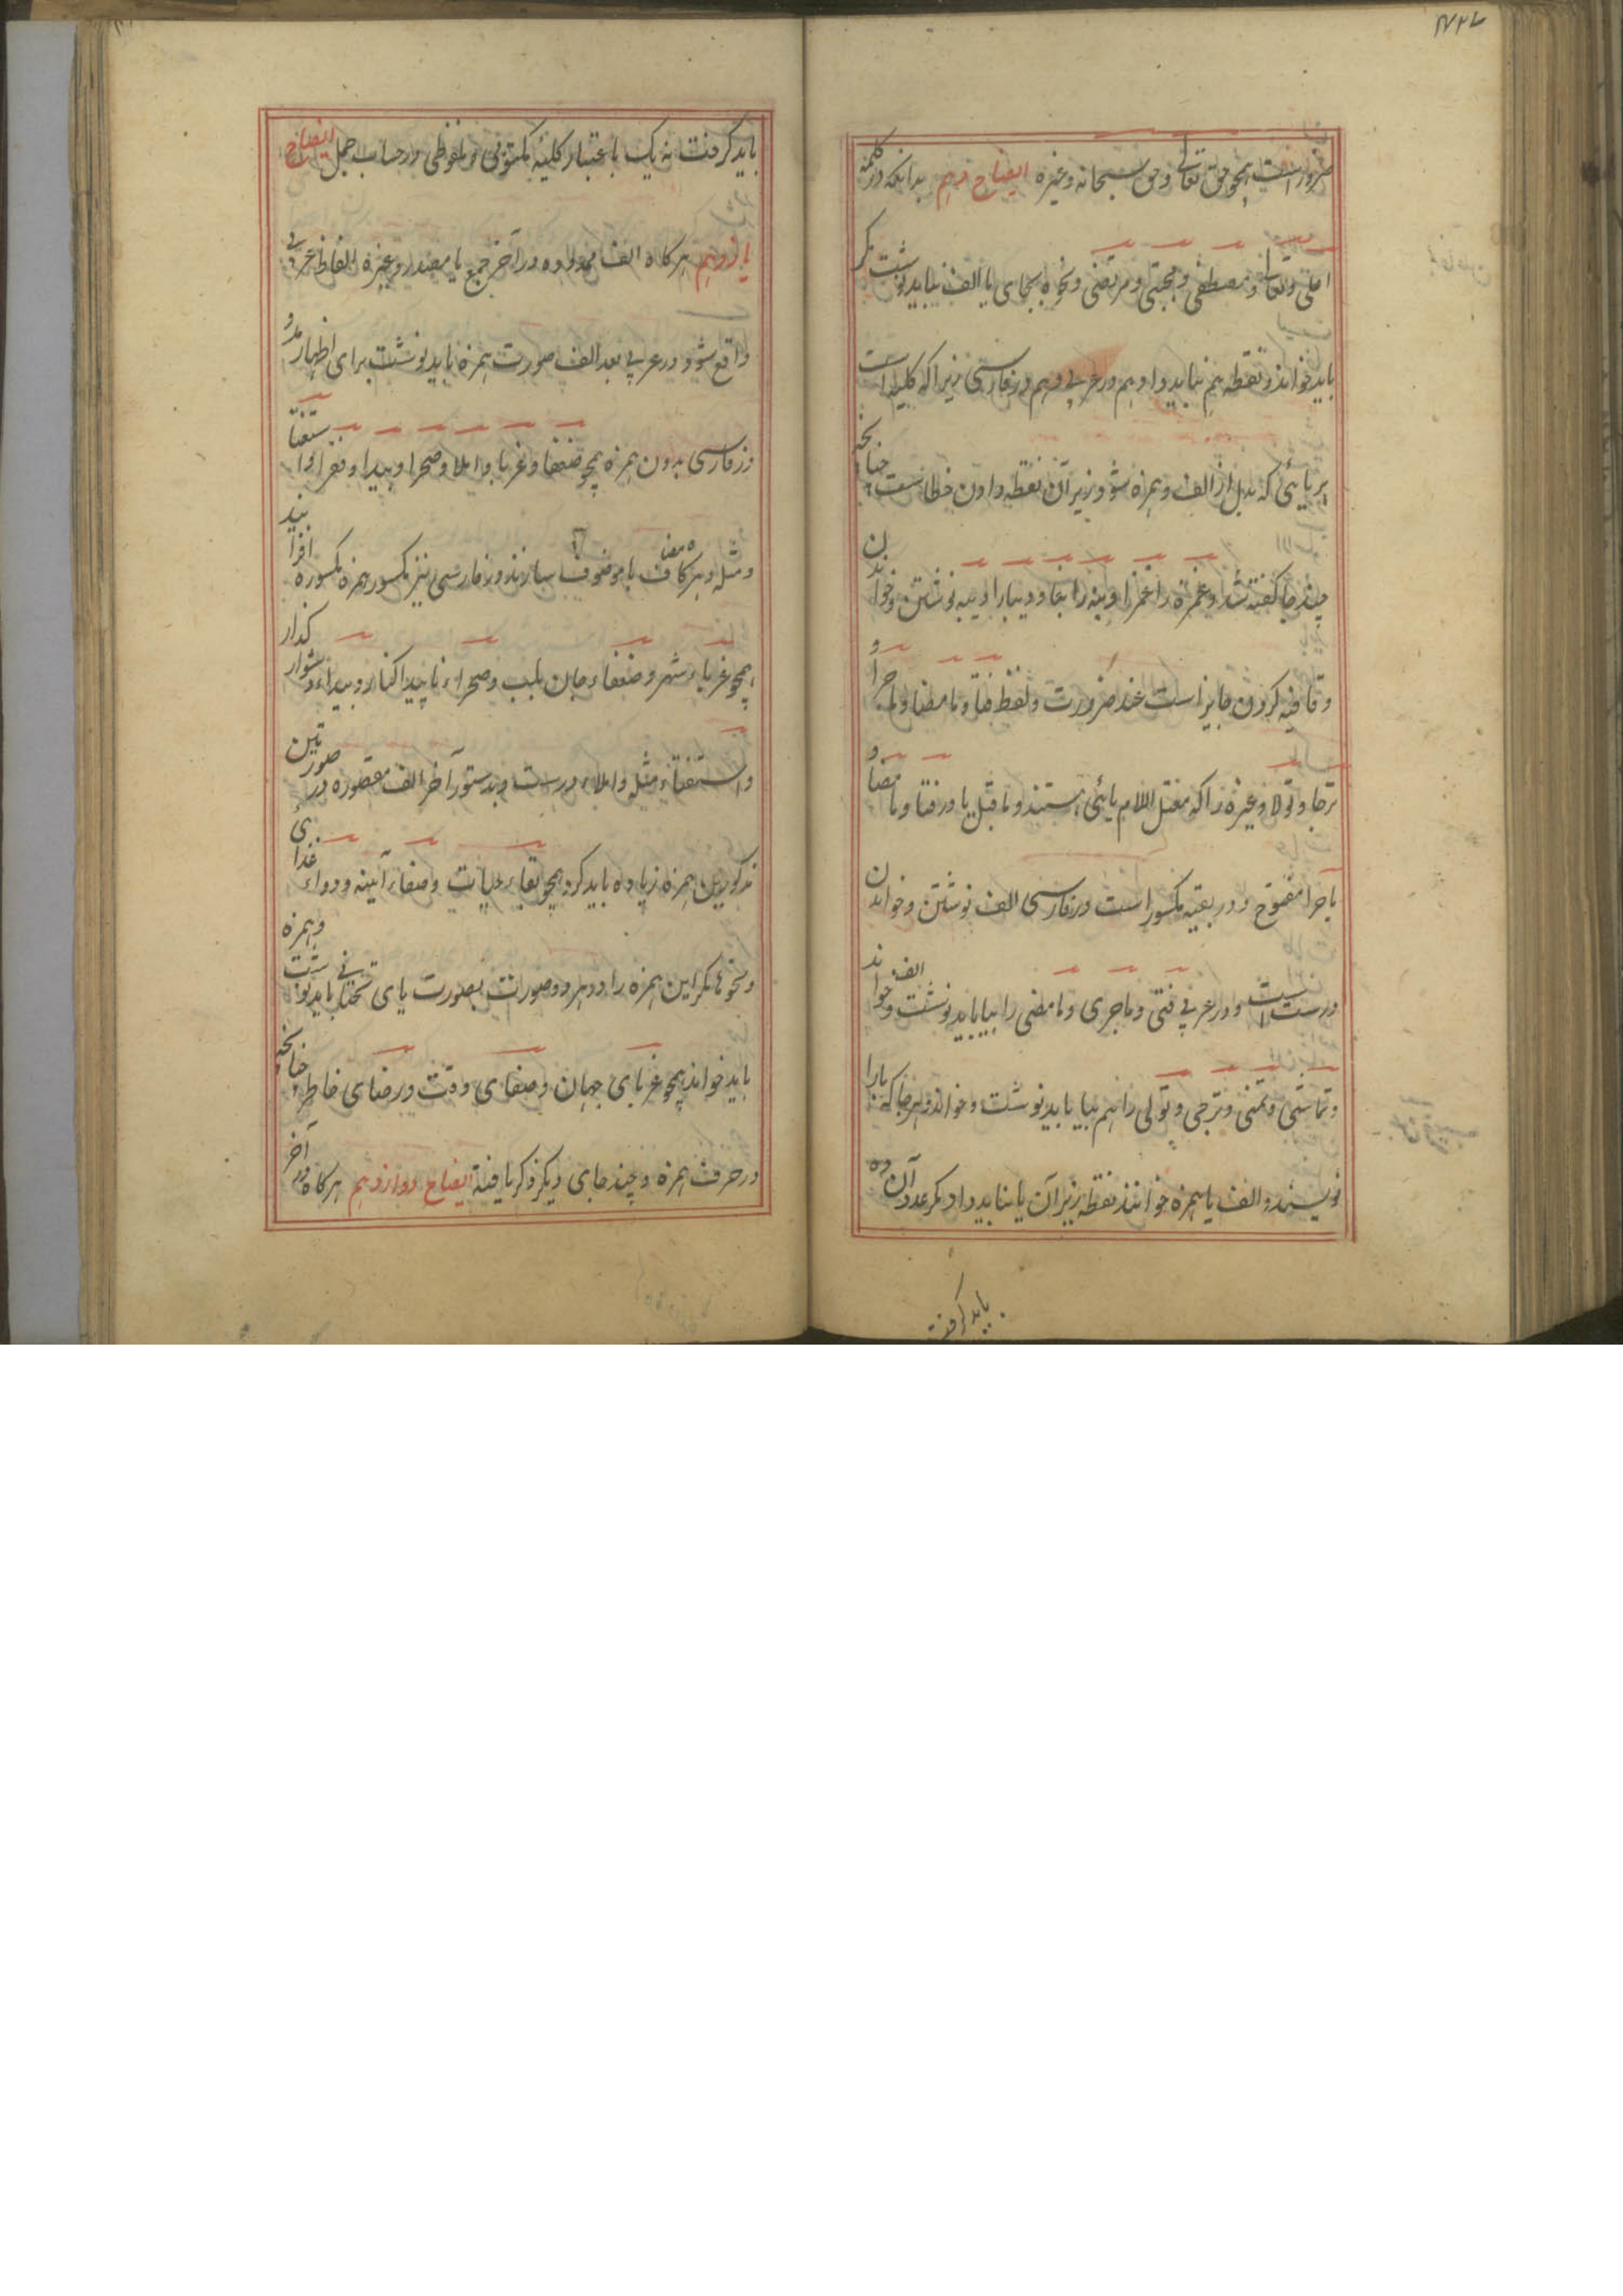 ضرور است همچو حق تعالی و حق سبحانه و غیره ایضاح دهم بدانکه در کلمه
اعلی و تعالی و مصطفی و مجتبی و مرتضی و نحوه بجای یا الف نباید نوشت مگر
باید خواند و نقطه هم نباید داد هم در عربی و هم در فارسی زیرا که کلیه است
هر یائی که بدل از الف و همزه شود زیر آن نقطه دادن خطاست چنانچه
چند جا گفته شد و غمزه را غمزا و بینه را بینا و دیبا را دیبه نوشتن و خواندن
و قافیه کردن جایز است عند ضرورت و لفظ فتا و مامضا و ماجرا و
ترجا و تولا و غیره را که معتل اللام یائی هستند و ماقبل یا در فتا و مامضا و
ماجرا مفتوح و در بقیه مکسور است در فارسی الف نوشتن و خواندن
درست است و در عربی فتی و ماجری و مامضی را بیا باید نوشت و الف خواند
و تماشی و تمنی و ترجی و تولی را هم بیا باید نوشت و خواند و هر جا که یا را
نویسند و الف یا همزه خوانند نقطه زیر آن یا نباید داد مگر عدد آن ده
باید گرفت
باید گرفت نه یک باعتبار کلیه مکتوبی و ملفوظی در حساب جمل ایضاح
یازدهم هر کاه الف ممدوده در آخر جمع یا مصدر و غیره الفاظ عربی
واقع شود در عربی بعد الف صورت همزه باید نوشت برای اظهار مد و
در فارسی بدون همزه همچو ضعفا و غربا و املا و صحرا و بیدا و فقرا و استفتا
و مثله و هر کاه مضاف یا موصوف سازند در فارسی نیز مکسور همزه مکسوره افزایند
همچو غرباء شهر و ضعفاء جان بلب و صحراء ناپیدا کنار و بیداء دشوار گذار
و استفتاء مثل و املاء درست و بدستور آخر الف مقصوره در صورتین
مذکورین همزه زیاده باید کرد همچو بقاء حیات و صفاء آیینه و دواء غذائی
و نحوها مگر این همزه را در هر دو صورت بصورت یای تحتانی باید نوشت و همزه
باید خواند همچو غربای جهان و صفای وقت و رضای خاطر چنانچه
در حرف همزه و چند جای دیگر ذکر یافته ایضاح دوازدهم هر کاه در آخر